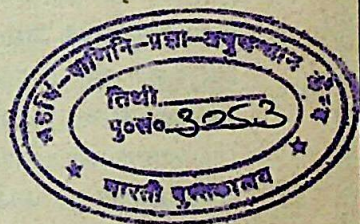 महर्षि-पाणिनि-प्रज्ञा-अनुसन्धान केन्द्र
तिथी
पु०सं० 3053
भारती पुस्तकालय